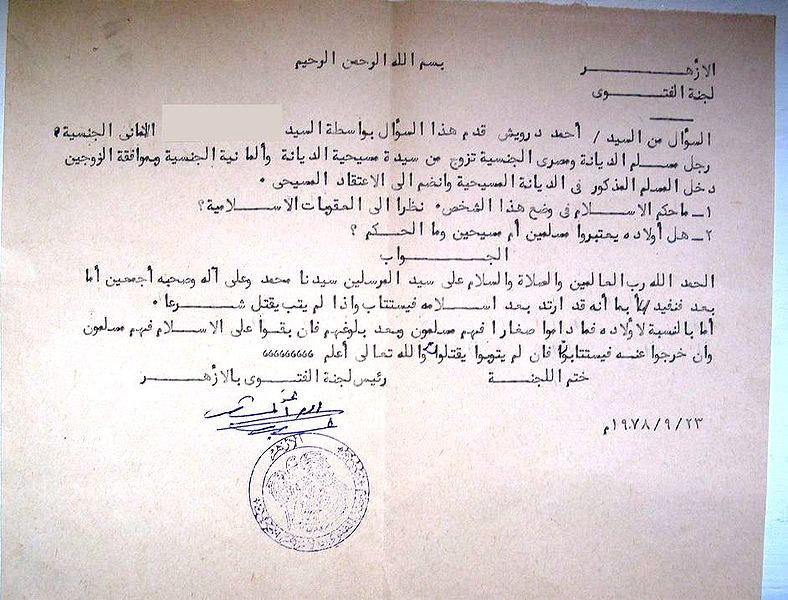 بسم الله الرحمن الرحيم
الأزهــــر
لجنة الفتــــوى
السؤال من السيد / أحمد درويش قدم هذا السؤال بواسطة السيد الالمانى الجنسية
رجل مسلم الديانة ومصرى الجنسية تزوج من سيدة مسيحية الديانة وألمانية الجنسية وبموافقة الزوجين
دخل المسلم المذكور فى الديانة المسيحية وانضم الى الاعتقاد المسيحى ٠
١ــ ماحكم الاســـلام فى وضع هذا الشخص٠ نظرا الى العقوبات الاســـلامية؟
٢ــ هل أولاده يعتبروا مسلمين أم مسيحين وما الحـــكم ؟
الجـــــواب
الحمد الله رب العالمين والصلاة والسلام على سيد المرسلين سيدنا محمد وعلى آله وصحبه أجمعين أما
بعد فنفيد بأما أنه قد ارتد بعد اســـلامه فيستتاب واذا لم يتب يقتل شـــرعا ٠
أما بالنسبة لأولاده فما داموا صغارا فهم مسلمون وبعد بلوغهم فان بقوا على الاســـلام فهم مسلمون
وان خرجوا عنه فيستتابوا فان لم يتوبوا يقتلون والله تعالى أعلم ٥٥٥٥٥٥٥٥٥
ختم اللجنـــة
رئيس لجنة الفتـــوى بالأزهـــر
٢٣/ ٩/ ١٩٧٨م
الأزهر